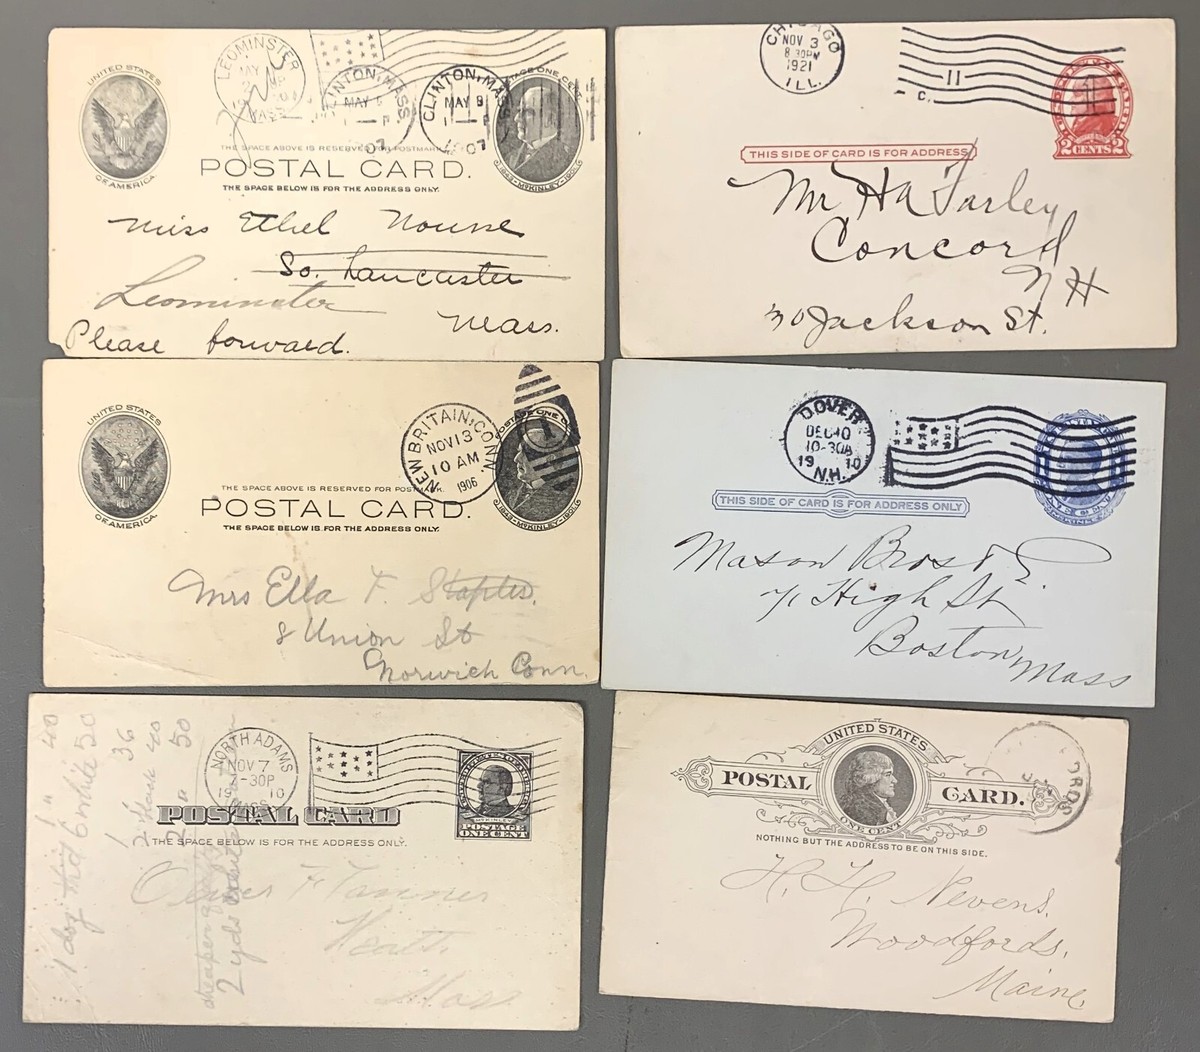 UNITED STATES
OF AMERICA.
LEOMINSTER
MAY
MASS
CLINTON, MASS.
MAY 9
1907
CLINTON, MASS.
MAY 9
1907
POSTAGE ONE CENT
1843-McKINLEY-1901
THE SPACE ABOVE IS RESERVED FOR POSTMARK.
POSTAL CARD.
THE SPACE BELOW IS FOR THE ADDRESS ONLY.
Miss Ethel Nourse
So. Lancaster
Leominster
Mass.
Please forward.
CHICAGO
NOV 3
8 30PM
1921
ILL.
11
C.
1
2 CENTS 2
THIS SIDE OF CARD IS FOR ADDRESS
Mr H A Farley
Concord
N H
30 Jackson St.
UNITED STATES
OF AMERICA.
NEW BRITAIN, CONN.
NOV 13
10 AM
1906
1
POSTAGE ONE CENT
1843-McKINLEY-1901
THE SPACE ABOVE IS RESERVED FOR POSTMARK.
POSTAL CARD.
THE SPACE BELOW IS FOR THE ADDRESS ONLY.
Mrs Ella F. Staples.
8 Union St
Norwich Conn.
DOVER
DEC 10
10-30A
1910
N.H.
THIS SIDE OF CARD IS FOR ADDRESS ONLY
Mason Bros & C
71 High St
Boston Mass
NORTH ADAMS
NOV 7
-30P
1910
MASS.
POSTAL CARD
THE SPACE BELOW IS FOR THE ADDRESS ONLY.
McKINLEY
POSTAGE
ONE CENT
Oliver F Tanner
Mass
1 doz
40
50
36
40
50
2 yds
UNITED STATES
POSTAL CARD.
ONE CENT
NOTHING BUT THE ADDRESS TO BE ON THIS SIDE.
RDS
H. H. Nevens.
Woodfords,
Maine.